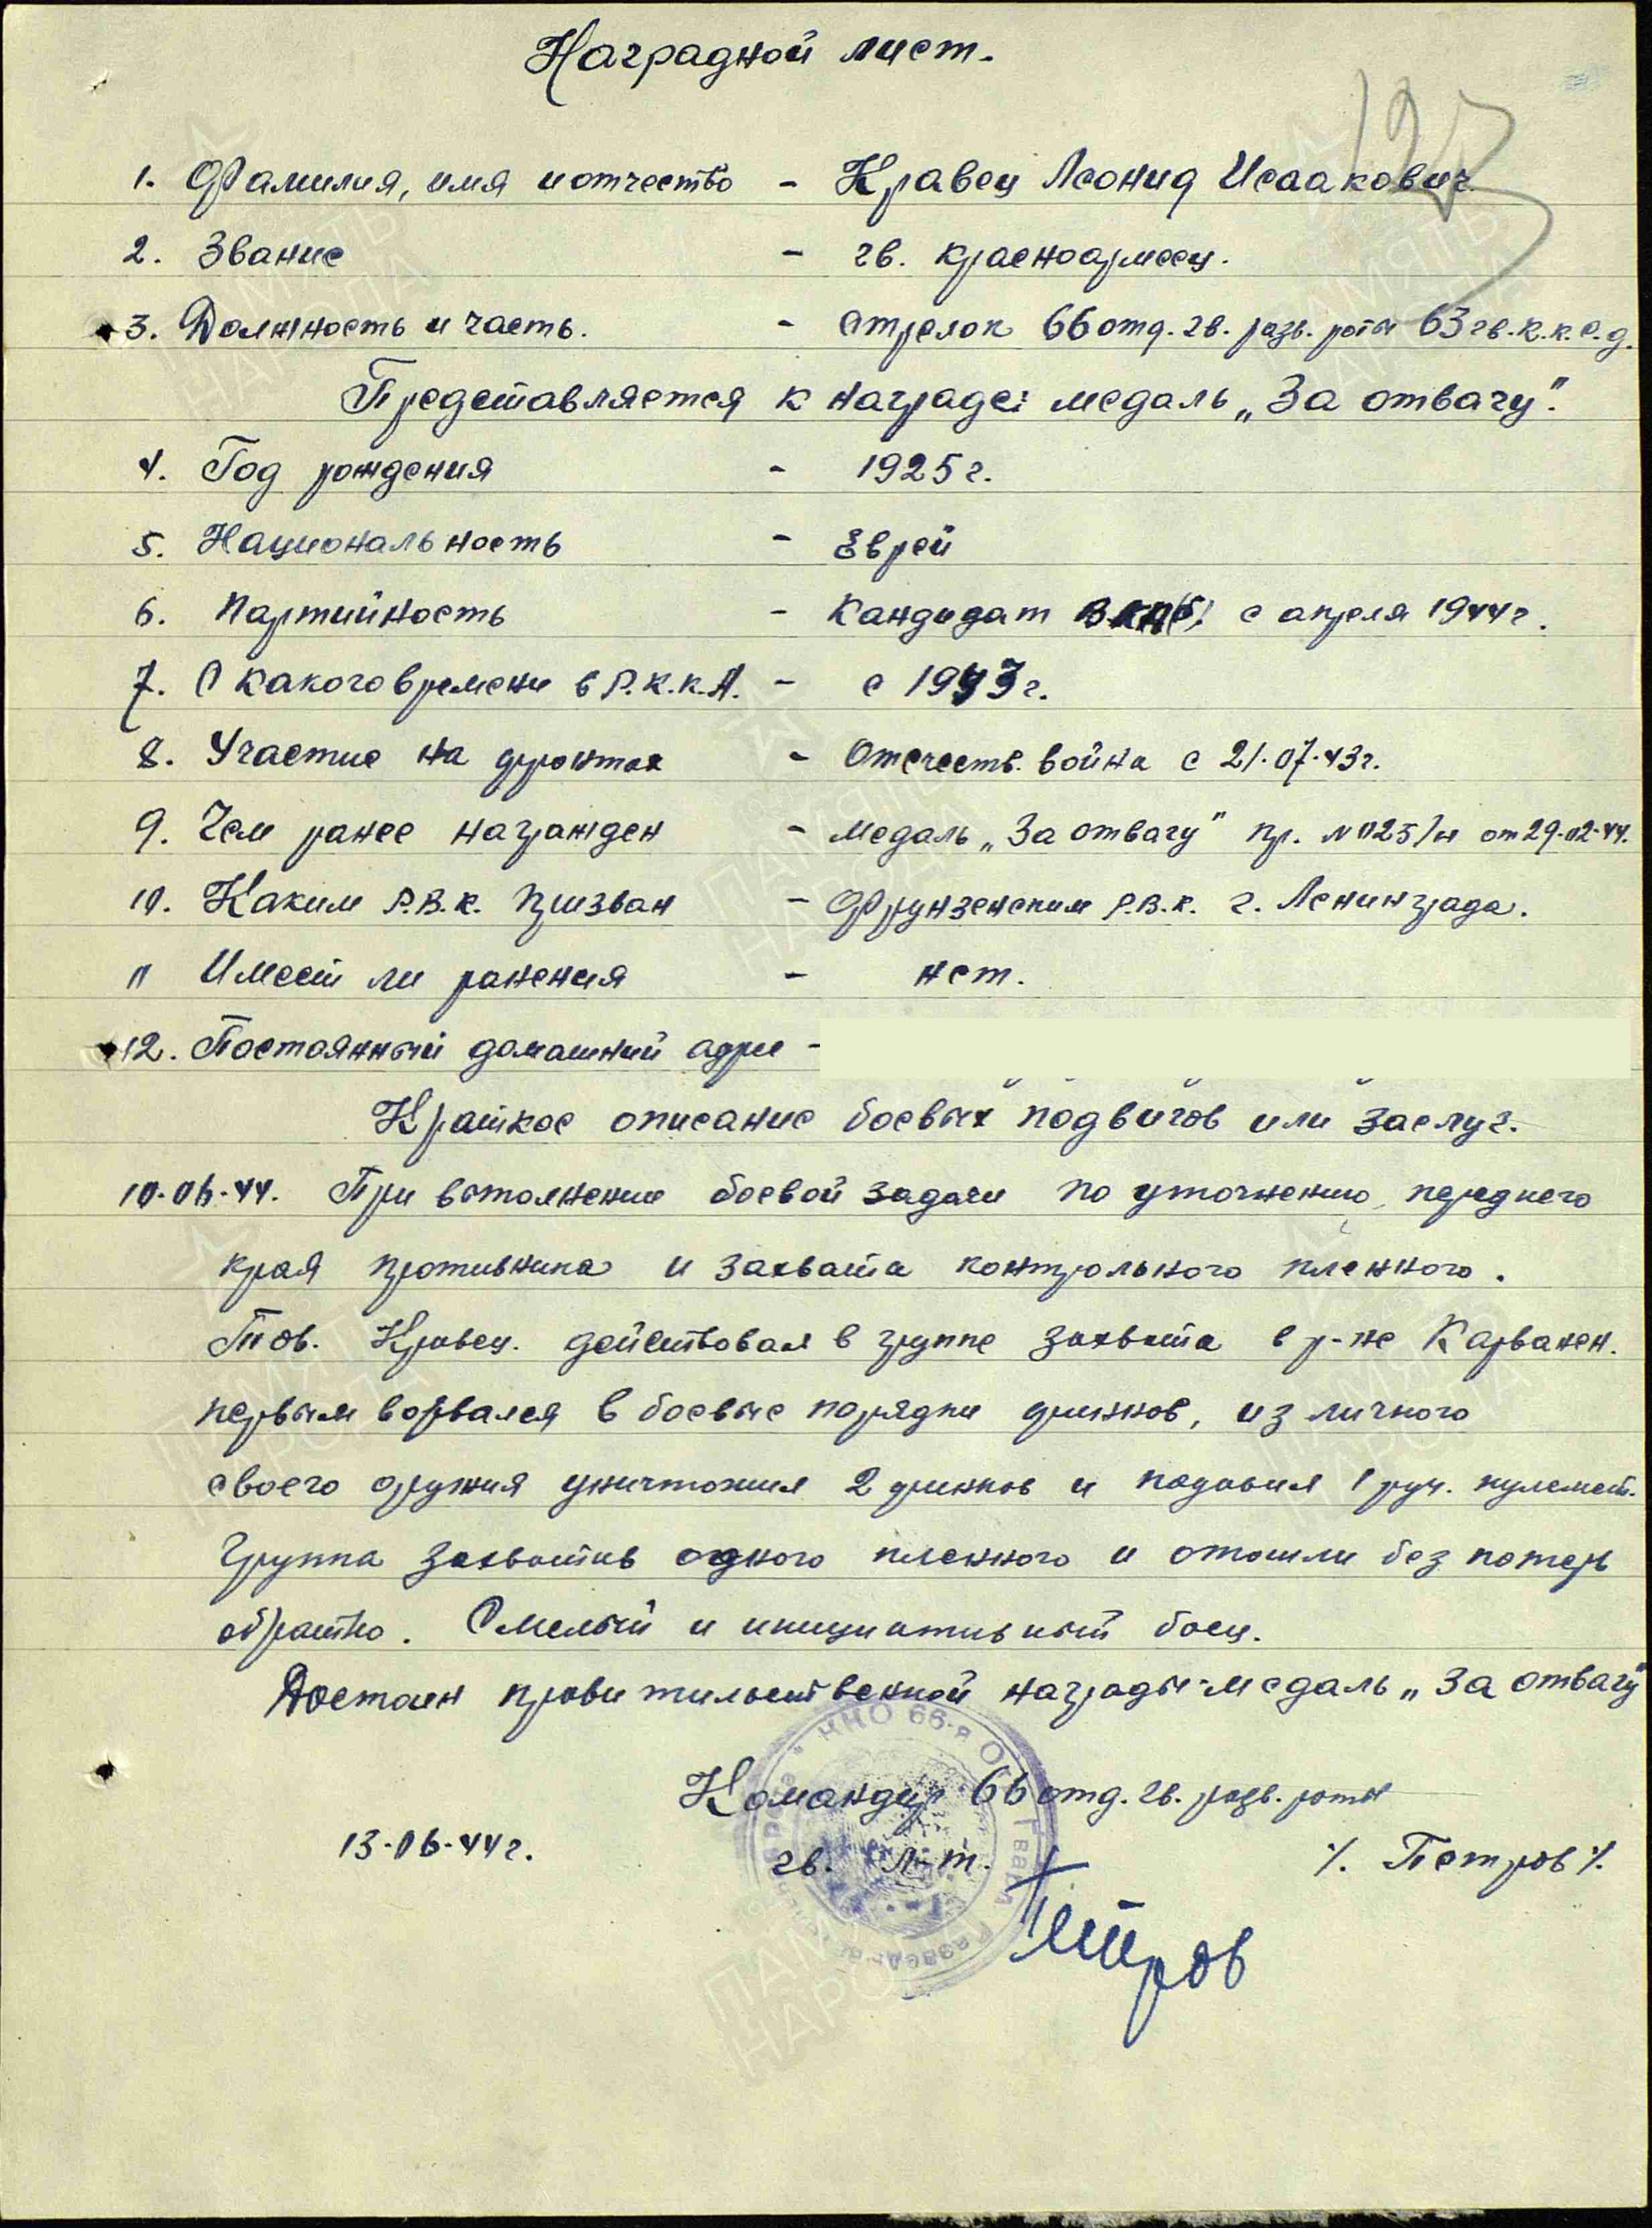 Наградной лист.
123
1. Фамилия, имя и отчество - Кравец Леонид Исаакович
2. Звание - гв. красноармеец.
3. Должность и часть. - стрелок 66 отд. гв. разв. роты 63 гв. к.к.с.д.
Представляется к награде: медаль „За отвагу".
4. Год рождения - 1925 г.
5. Национальность - Еврей
6. Партийность - Кандидат ВКП(б) с апреля 1944 г.
7. С какого времени в Р.К.К.А. - с 1943 г.
8. Участие на фронтах - Отечеств. война с 21.07.43 г.
9. Чем ранее награжден - медаль „За отвагу" пр. № 025/н от 29.02.44.
10. Каким Р.В.К. призван - Фрунзенским Р.В.К. г. Ленинграда.
11 Имеет ли ранения - нет.
12. Постоянный домашний адрес -
Краткое описание боевых подвигов или заслуг.
10.06.44. При выполнении боевой задачи по уточнению переднего
края противника и захвата контрольного пленного.
Тов. Кравец. действовал в группе захвата в р-не Карванен.
первым ворвался в боевые порядки финнов, из личного
своего оружия уничтожил 2 финнов и подавил 1 руч. пулемет.
Группа захватив одного пленного и отошли без потерь
обратно. Смелый и инициативный боец.
Достоин правительственной награды-медаль „За отвагу"
Командир 66 отд. гв. разв. роты
13.06.44 г. гв. л-т. /. Петров /.
Петров
НКО 66-я